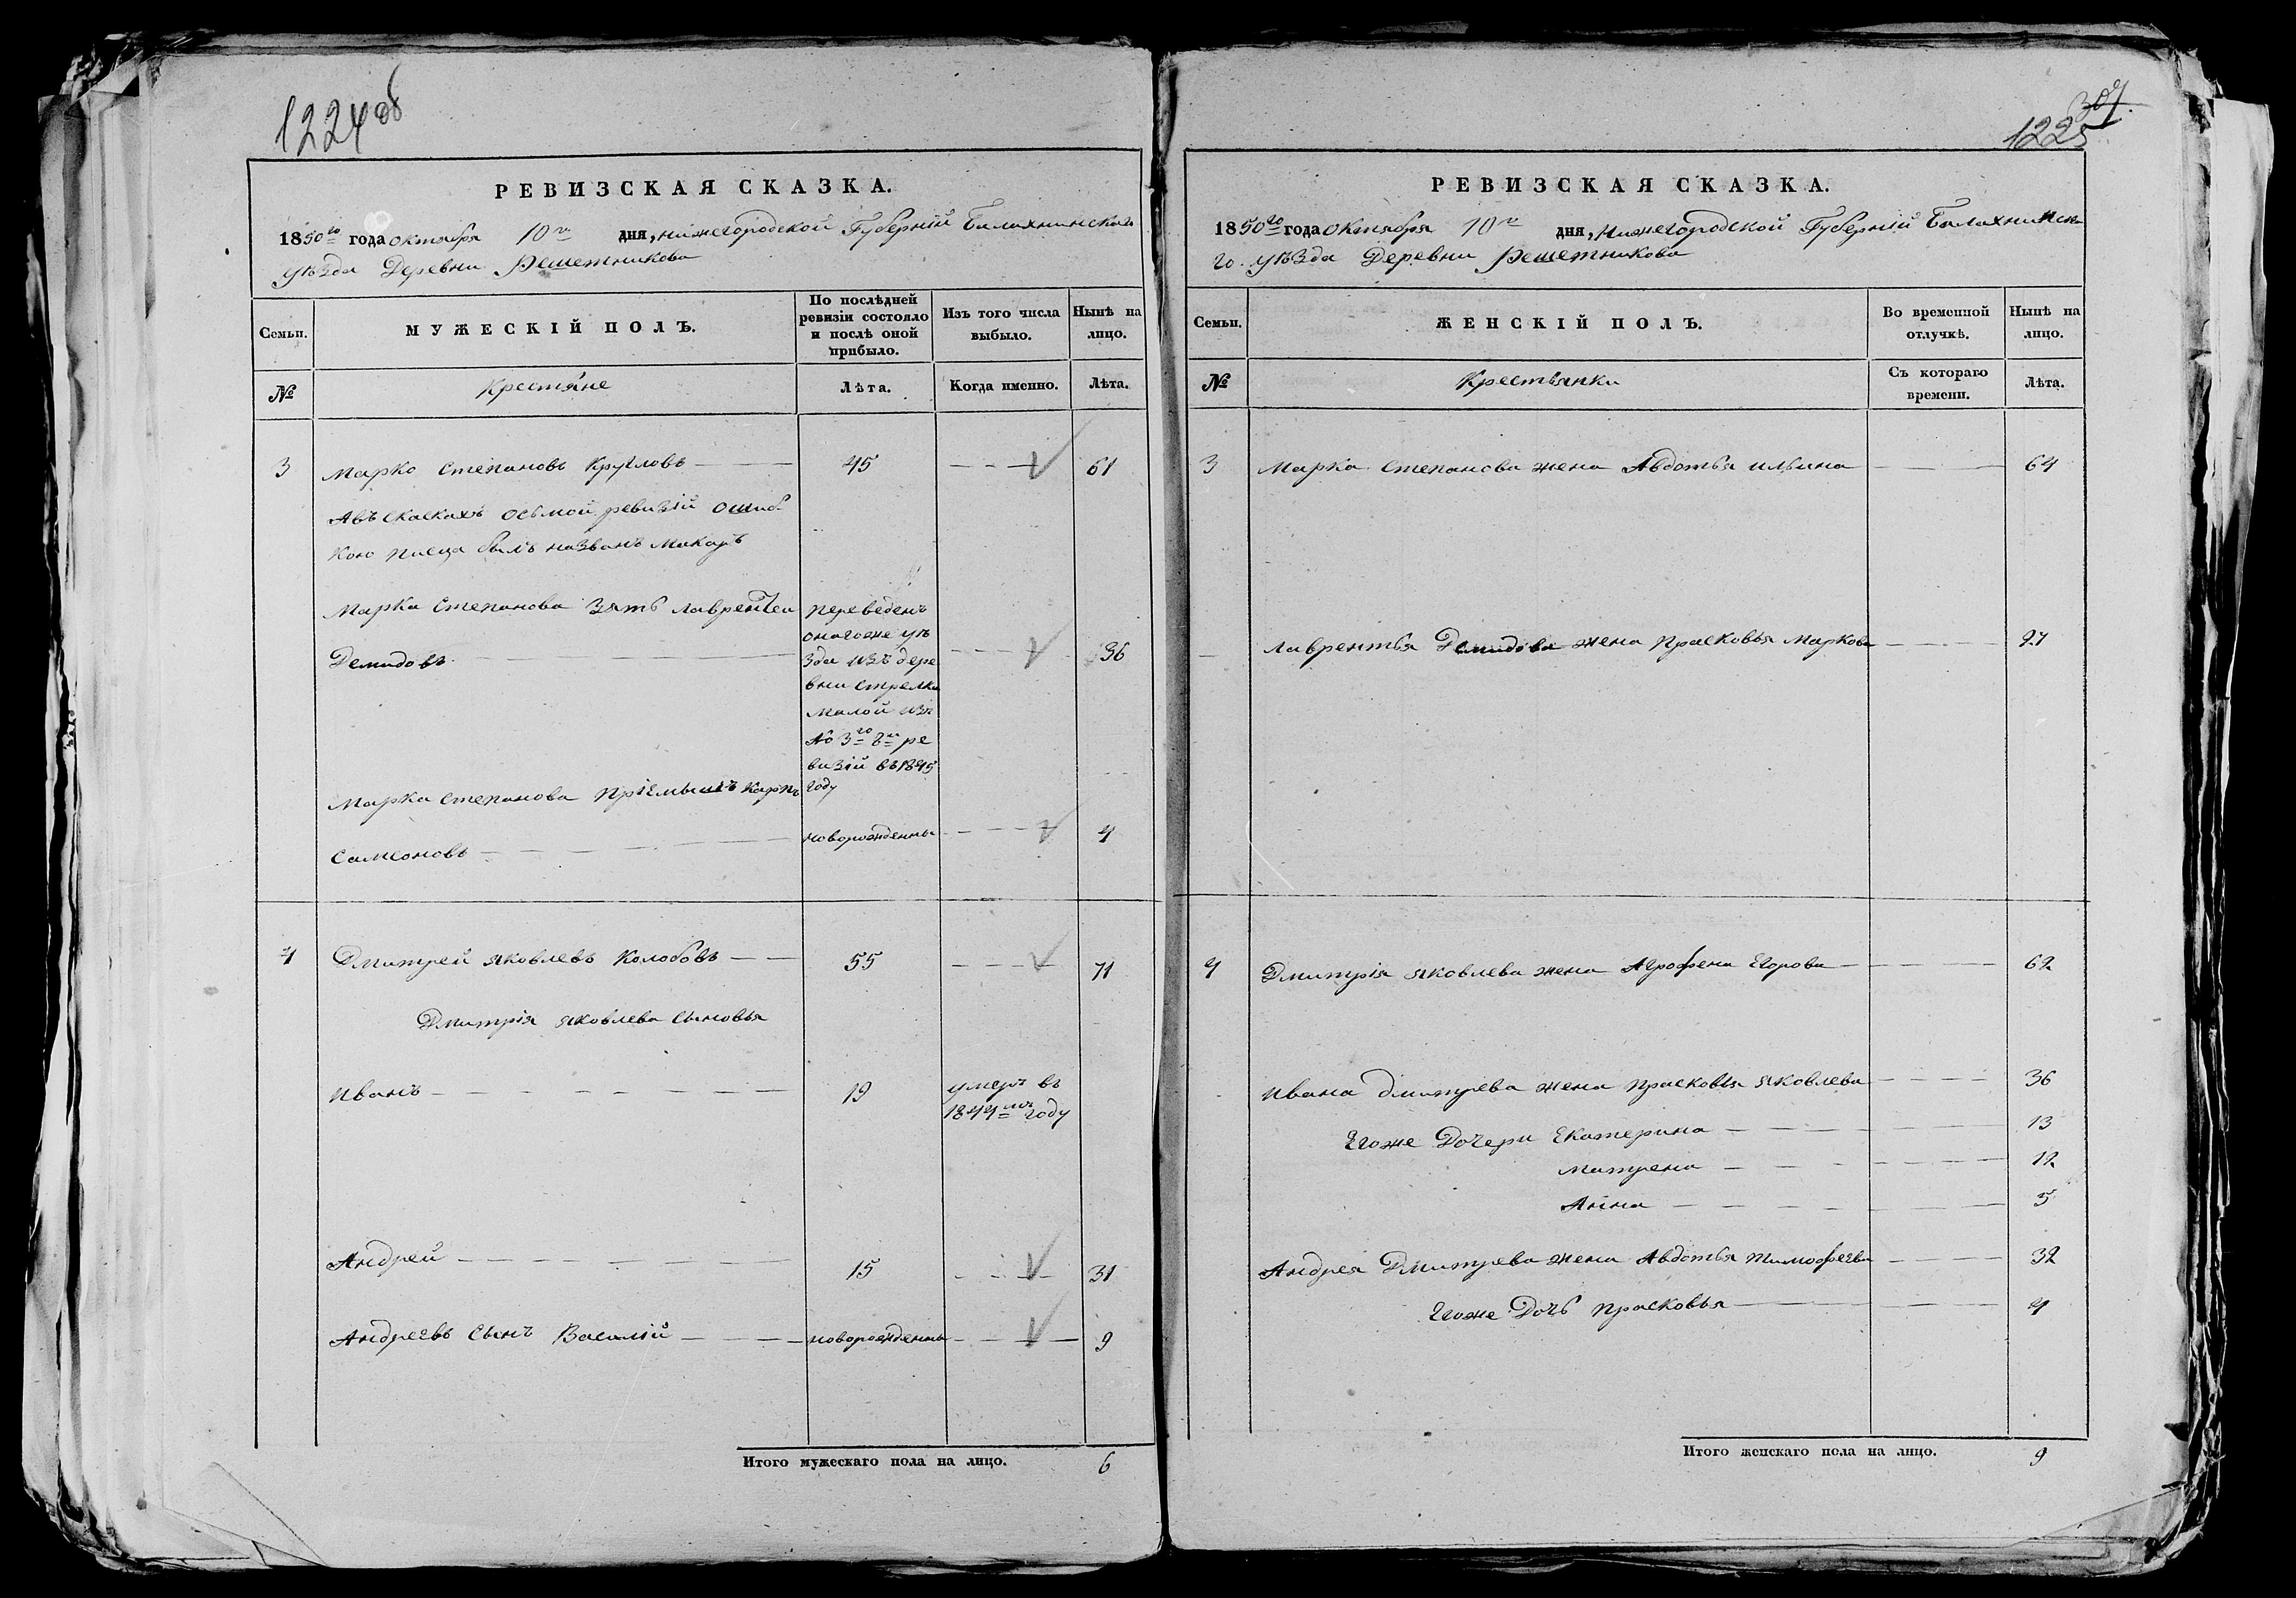 1224 об
РЕВИЗСКАЯ СКАЗКА.
1850го года октября 10го дня, нижегородской Губерніи Балахнинскаго
уѣзда Деревни Решетникова
Семьи.
МУЖЕСКІЙ ПОЛЪ.
По послѣдней ревизіи состояло и послѣ оной прибыло.
Изъ того числа выбыло.
Нынѣ на лицо.
№
Крестяне
Лѣта.
Когда именно.
Лѣта.
3 Марко Степановъ Кругловъ 45 61
Авъ скаскахъ осьмой ревизіи ошиб
кою писца былъ названъ Макаръ
Марка Степанова Зять Лаврентей
Демидовъ 36
переведенъ
онагоже уѣ
зда изъ дере
вни Стрелки
Малой изъ
№ 3го 8й ре
визіи въ 1845
году
Марка Степанова пріемышъ Карпъ
Самсоновъ новорожденны 4
4 Дмитрей Яковлевъ Колобовъ 55 71
Дмитрія Яковлева сыновья
Иванъ 19 умеръ въ
1844мъ году
Андрей 15 31
Андреевъ Сынъ Василій новорожденны 9
Итого мужескаго пола на лицо. 6
307.
1225
РЕВИЗСКАЯ СКАЗКА.
1850го года октября 10го дня, Нижегородской Губерніи Балахнинска
го уѣзда Деревни Решетникова
Семьи.
ЖЕНСКІЙ ПОЛЪ.
Во временной отлучкѣ.
Нынѣ на лицо.
№
Крестьянки
Съ котораго времени.
Лѣта.
3 Марка Степанова жена Авдотья Ильина 64
Лаврентья Демидова жена Прасковья Маркова 27
4 Дмитрія Яковлева жена Агрофена Егорова 62
Ивана Дмитрева жена Прасковья Яковлева 36
Егоже Дочери Екатерина 13
Матрена 12
Анна 5
Андрея Дмитрева жена Авдотья Тимофеева 32
Егоже Дочь Прасковья 4
Итого женскаго пола на лицо. 9